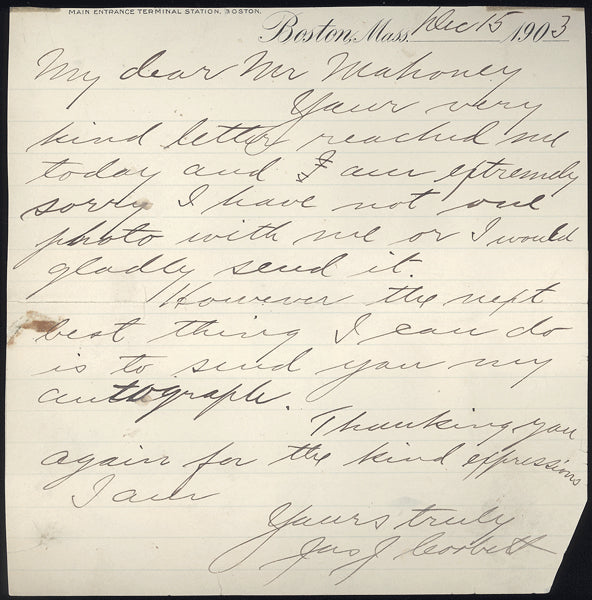 MAIN ENTRANCE TERMINAL STATION, BOSTON.
Boston, Mass. Dec 15 1903
My dear Mr Mahoney
Your very
kind letter reached me
today and I am extremely
sorry I have not one
photo with me or I would
gladly send it.
However the next
best thing I can do
is to send you my
autograph.
Thanking you
again for the kind expressions
I am
Yours truly
Jas J Corbett